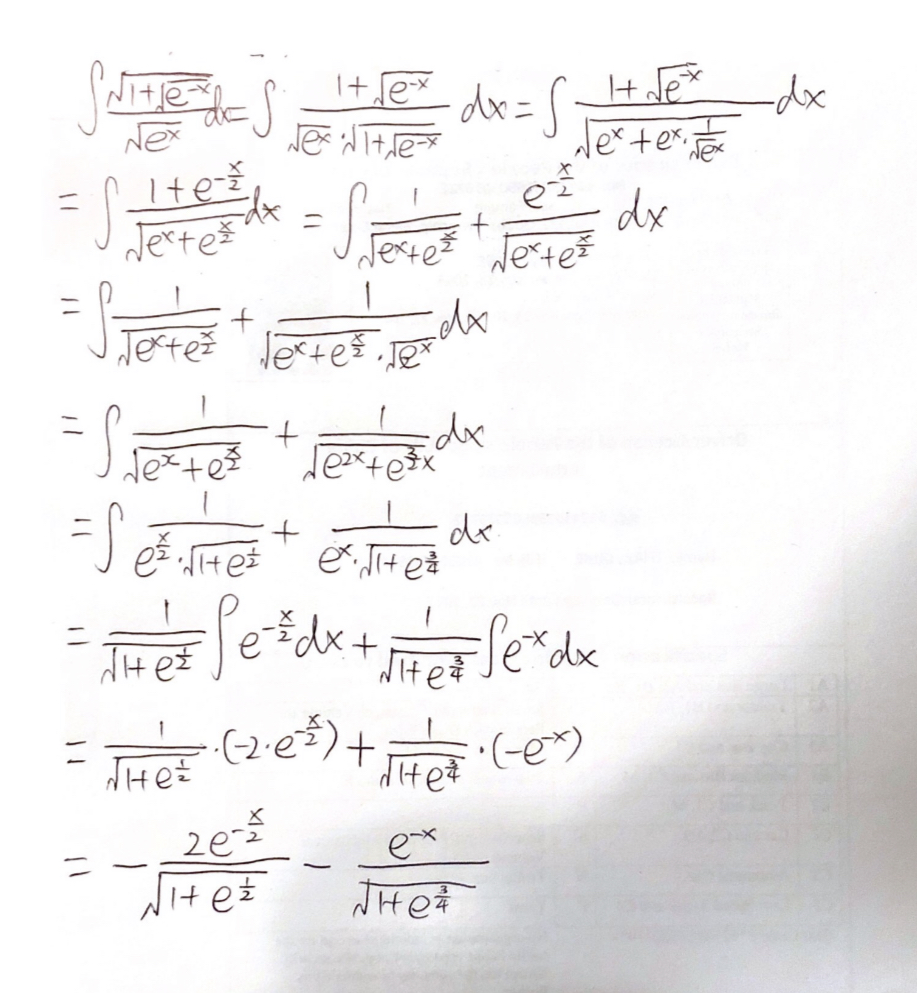 ∫ √(1+√(e^-x))/√(e^x) dx = ∫ (1+√(e^-x))/(√(e^x)·√(1+√(e^-x))) dx = ∫ (1+√(e^-x))/√(e^x+e^x·1/√(e^x)) dx
= ∫ (1+e^(-x/2))/√(e^x+e^(x/2)) dx = ∫ 1/√(e^x+e^(x/2)) + e^(-x/2)/√(e^x+e^(x/2)) dx
= ∫ 1/√(e^x+e^(x/2)) + 1/(√(e^x+e^(x/2))·√(e^x)) dx
= ∫ 1/√(e^x+e^(x/2)) + 1/√(e^(2x)+e^(3/2 x)) dx
= ∫ 1/(e^(x/2)·√(1+e^(1/2))) + 1/(e^x·√(1+e^(3/4))) dx
= 1/√(1+e^(1/2)) ∫ e^(-x/2) dx + 1/√(1+e^(3/4)) ∫ e^-x dx
= 1/√(1+e^(1/2)) ·(-2·e^(-x/2)) + 1/√(1+e^(3/4)) ·(-e^-x)
= - 2e^(-x/2)/√(1+e^(1/2)) - e^-x/√(1+e^(3/4))